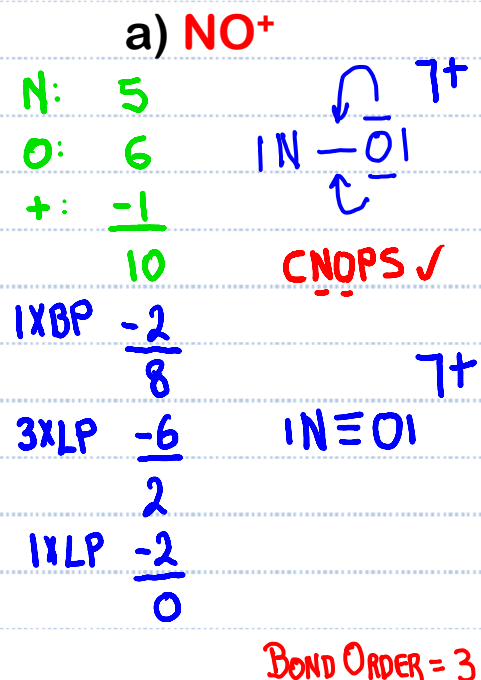 a) NO⁺
N: 5
O: 6
+: -1
10
1XBP -2
8
3XLP -6
2
1XLP -2
0
7+
IN—OI
CNOPS ✓
7+
IN≡OI
BOND ORDER = 3